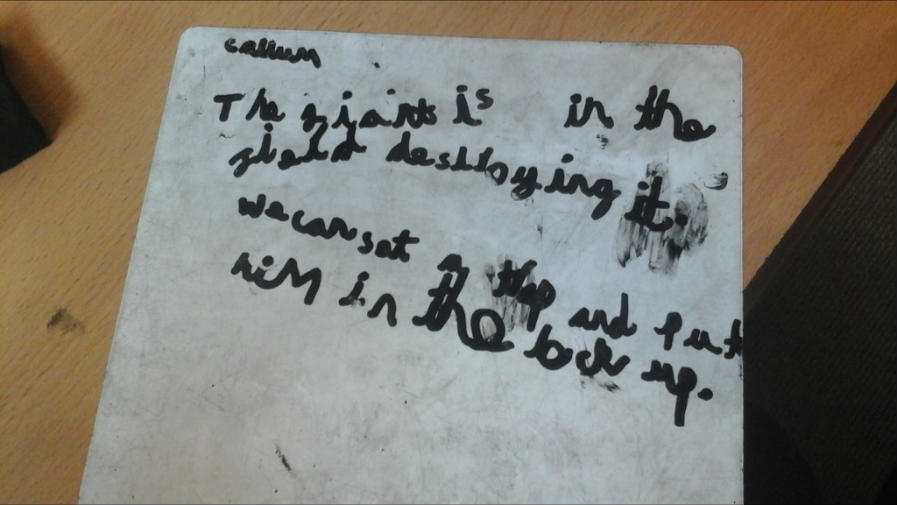 callum
The giants is in the
field destroying it.
we can set a trap and put
him in the lock up.